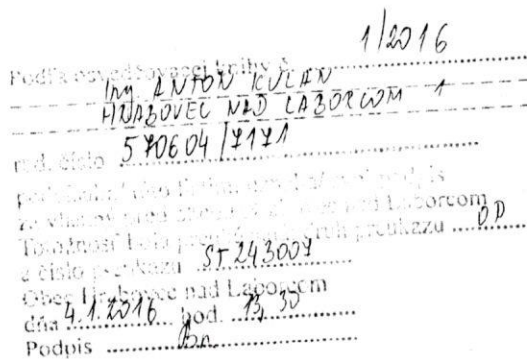 Podľa osvedčovacej knihy č. 1/2016
Ing. ANTON KULAN
HRABOVEC NAD LABORCOM 1
rod. číslo 570604/7171
podpis
za vlastný pred nad Laborcom
Totožnosť bola druh preukazu OP
a číslo preukazu ST243007
Obec Hrabovec nad Laborcom
dňa 4.1.2016 hod. 13,30
Podpis